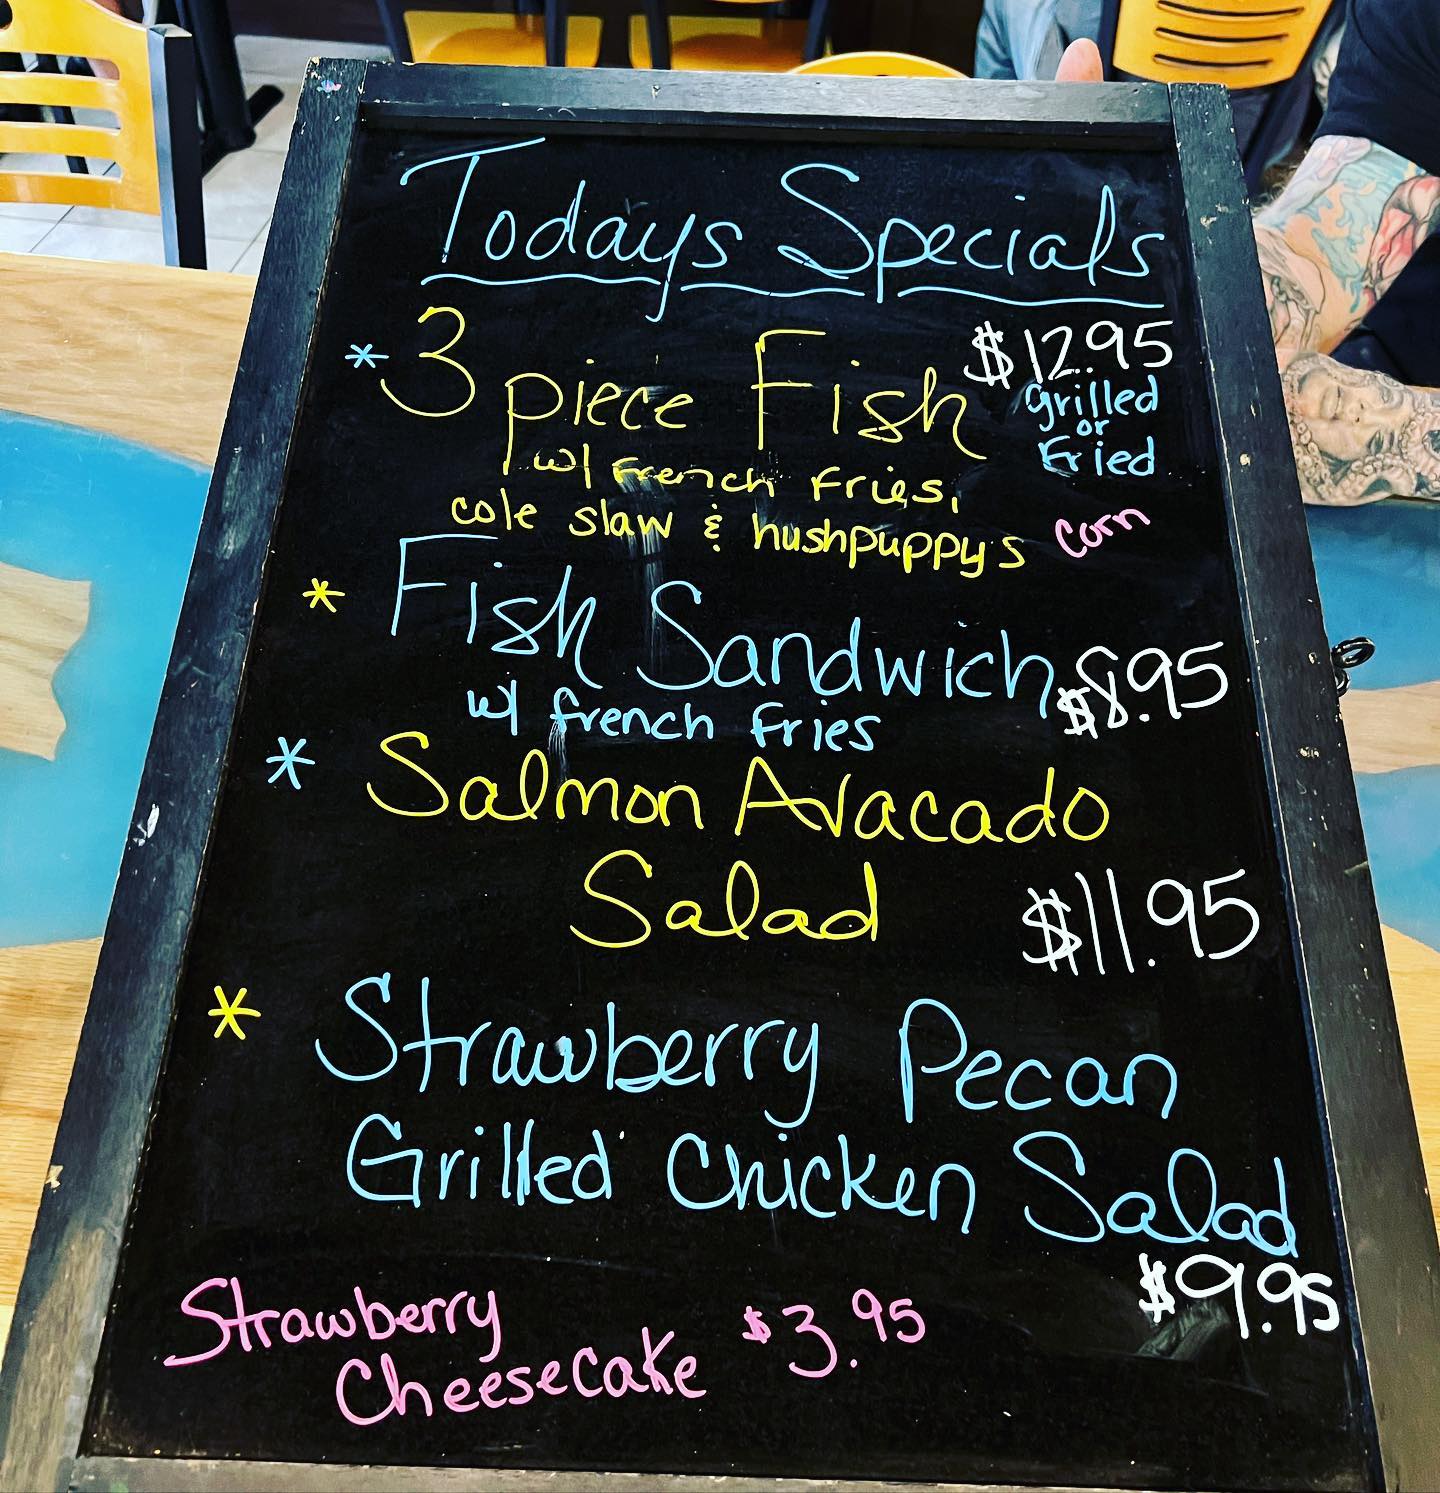 Todays Specials
* 3 piece Fish $12.95
Grilled
or
Fried
w/ French Fries,
cole slaw & hushpuppy's corn
* Fish Sandwich $8.95
w/ french fries
* Salmon Avacado
Salad $11.95
* Strawberry Pecan
Grilled Chicken Salad
$9.95
Strawberry
Cheesecake $3.95